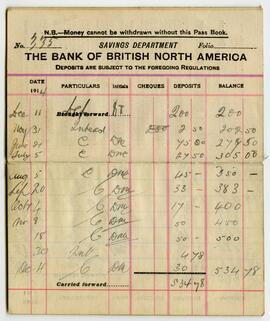 N.B.—Money cannot be withdrawn without this Pass Book.
No. 335 SAVINGS DEPARTMENT Folio
THE BANK OF BRITISH NORTH AMERICA
DEPOSITS ARE SUBJECT TO THE FOREGOING REGULATIONS
DATE PARTICULARS Initials CHEQUES DEPOSITS BALANCE
1914
Dec 11 Brought forward 200 200
May 31 Interest 2 50 202 50
June 21 C 75 00 277 50
July 5 C 27 50 305 00
Aug 5 C 45 350
Sep 20 C 33 383
Oct 4 C 17 400
Nov 8 C 50 450
18 C 50 500
30 Int 4 78
Dec 11 C 30 534 78
Carried forward 534 78